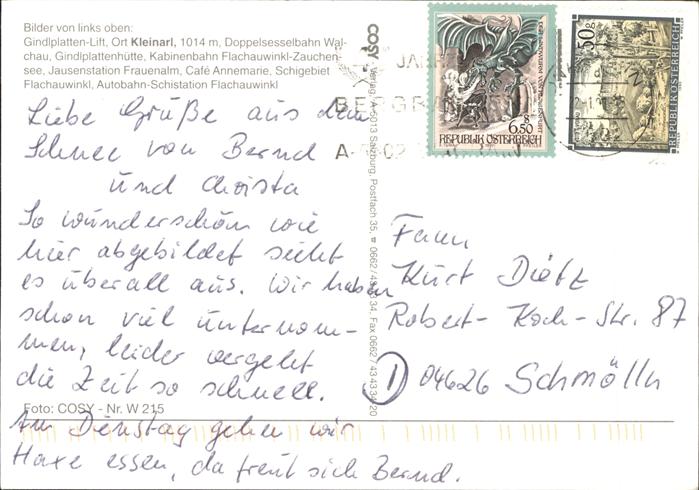 Bilder von links oben:
Gindlplatten-Lift, Ort Kleinarl, 1014 m, Doppelsesselbahn Wal-
chau, Gindlplattenhütte, Kabinenbahn Flachauwinkl-Zauchen-
see, Jausenstation Frauenalm, Café Annemarie, Schigebiet
Flachauwinkl, Autobahn-Schistation Flachauwinkl
Liebe Grüße aus dem
Schnee von Bernd
und Christa
So wunderschön wie
hier abgebildet sieht
es überall aus. Wir haben
schon viel unternom-
men, leider vergeht
die Zeit so schnell.
Foto: COSY - Nr. W 215
Am Dienstag gehen wir
Haxe essen, da freut sich Bernd.
COSY Verlag, A-5013 Salzburg, Postfach 35,
JAHR
BERGB
6.50
REPUBLIK ÖSTERREICH
50
REPUBLIK ÖSTERREICH
Fam
Kurt Dietz
Robert-Koch-Str. 87
D 04626 Schmölln